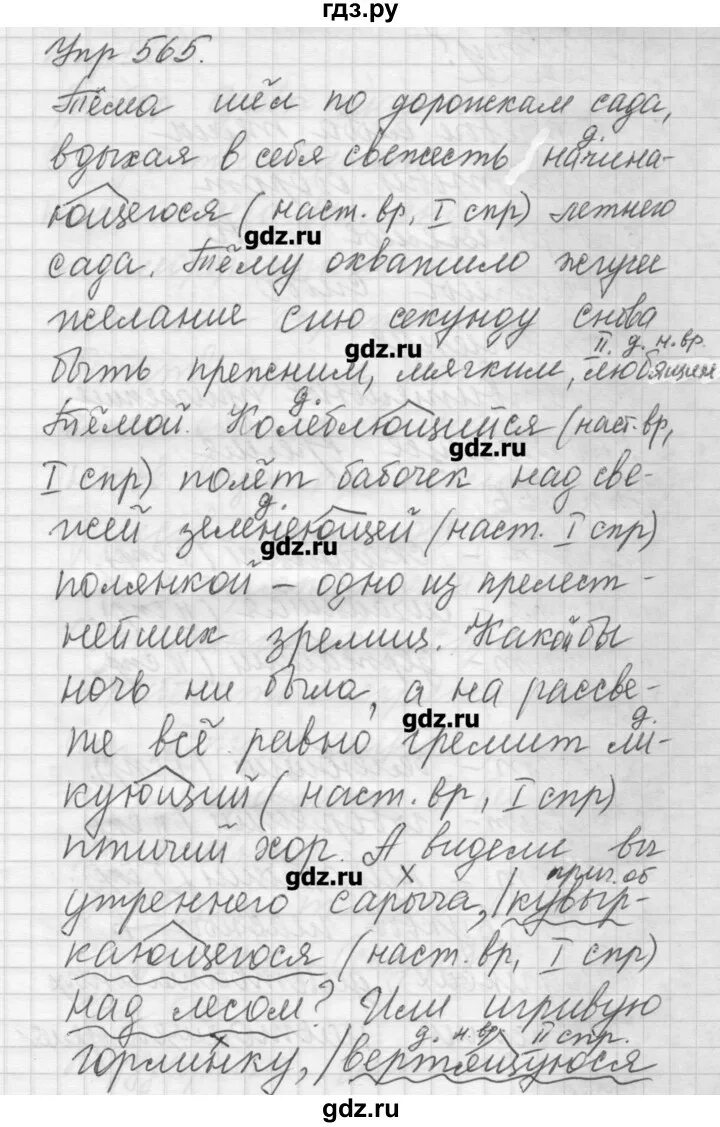 гдз.ру
Упр 565.
Тёма шёл по дорожкам сада,
вдыхая в себя свежесть
д.
начина-
ющегося (наст. вр, I спр) летнего
gdz.ru
сада. Тёму охватило жгучее
желание сию секунду снова
gdz.ru
II. д. н. вр.
быть прежним, мягким, любящим
д.
Тёмой. Колеблющийся (наст. вр,
gdz.ru
I спр) полёт бабочек над све-
д.
жей зеленеющей (наст. I спр)
gdz.ru
полянкой – одно из прелест-
нейших зрелищ. Какой бы
ночь ни была, а на рассве-
gdz.ru
д.
те всё равно гремит ли-
кующий (наст. вр, I спр)
птичий хор. А видели вы
gdz.ru
х
прич. об
утреннего сарыча, /кувыр-
кающегося (наст. вр, I спр)
над лесом? Или игривую
х
д. н. вр II спр.
горлинку, /вертящуюся
gdz.ru